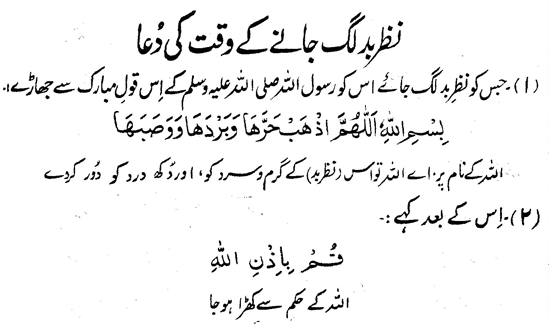 نظر بد لگ جانے کے وقت کی دُعا
(۱)۔ جس کو نظرِ بد لگ جائے اس کو رسول اللہ صلی اللہ علیہ وسلم کے اِس قولِ مبارک سے جھاڑے:۔
بِسْمِ اللهِ اَللّٰهُمَّ اذْهَبْ حَرَّهَا وَبَرْدَهَا وَوَصَبَهَا
اللہ کے نام پر، اے اللہ تو اس (نظر بد) کے گرم و سرد کو، اور دُکھ درد کو دُور کر دے
(۲)۔ اِس کے بعد کہے :۔
قُمْ بِاِذْنِ اللهِ
اللہ کے حکم سے کھڑا ہو جا